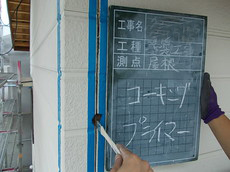 工事名
工種
測点 屋根
コーキング
プライマー